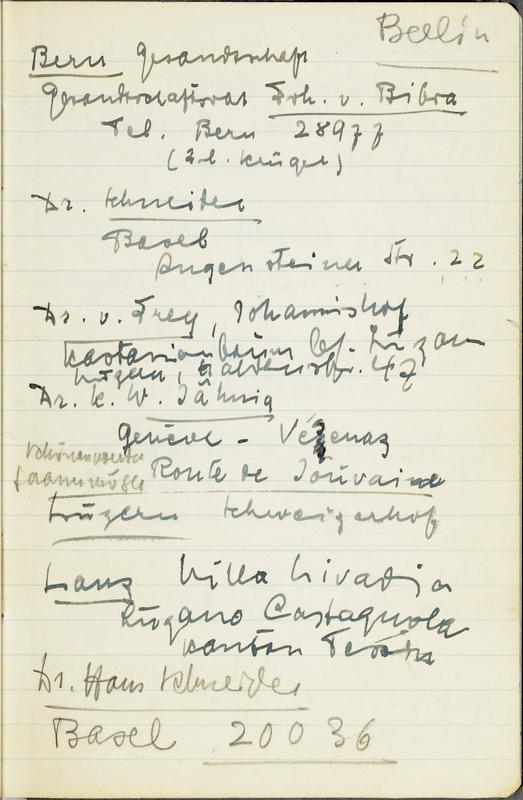 Berlin
Bern Gesandtschaft
Gesandtschaftsrat Frh. v. Bibra
Tel. Bern 28977
(z.b. Krüger)
Dr. Schneider
Basel
Augensteiner Str. 22
Dr. v. Frey, Johannishof
Kastanienbaum bei Luzern
Luzern, 47
Dr. K. W. Jähnig
Genève - Vézenaz
Route de Touvaine
Luzern Schweizerhof
Lanz Villa Livadia
Lugano Castagnola
Kanton Tessin
Dr. Hans Schneider
Basel 20036